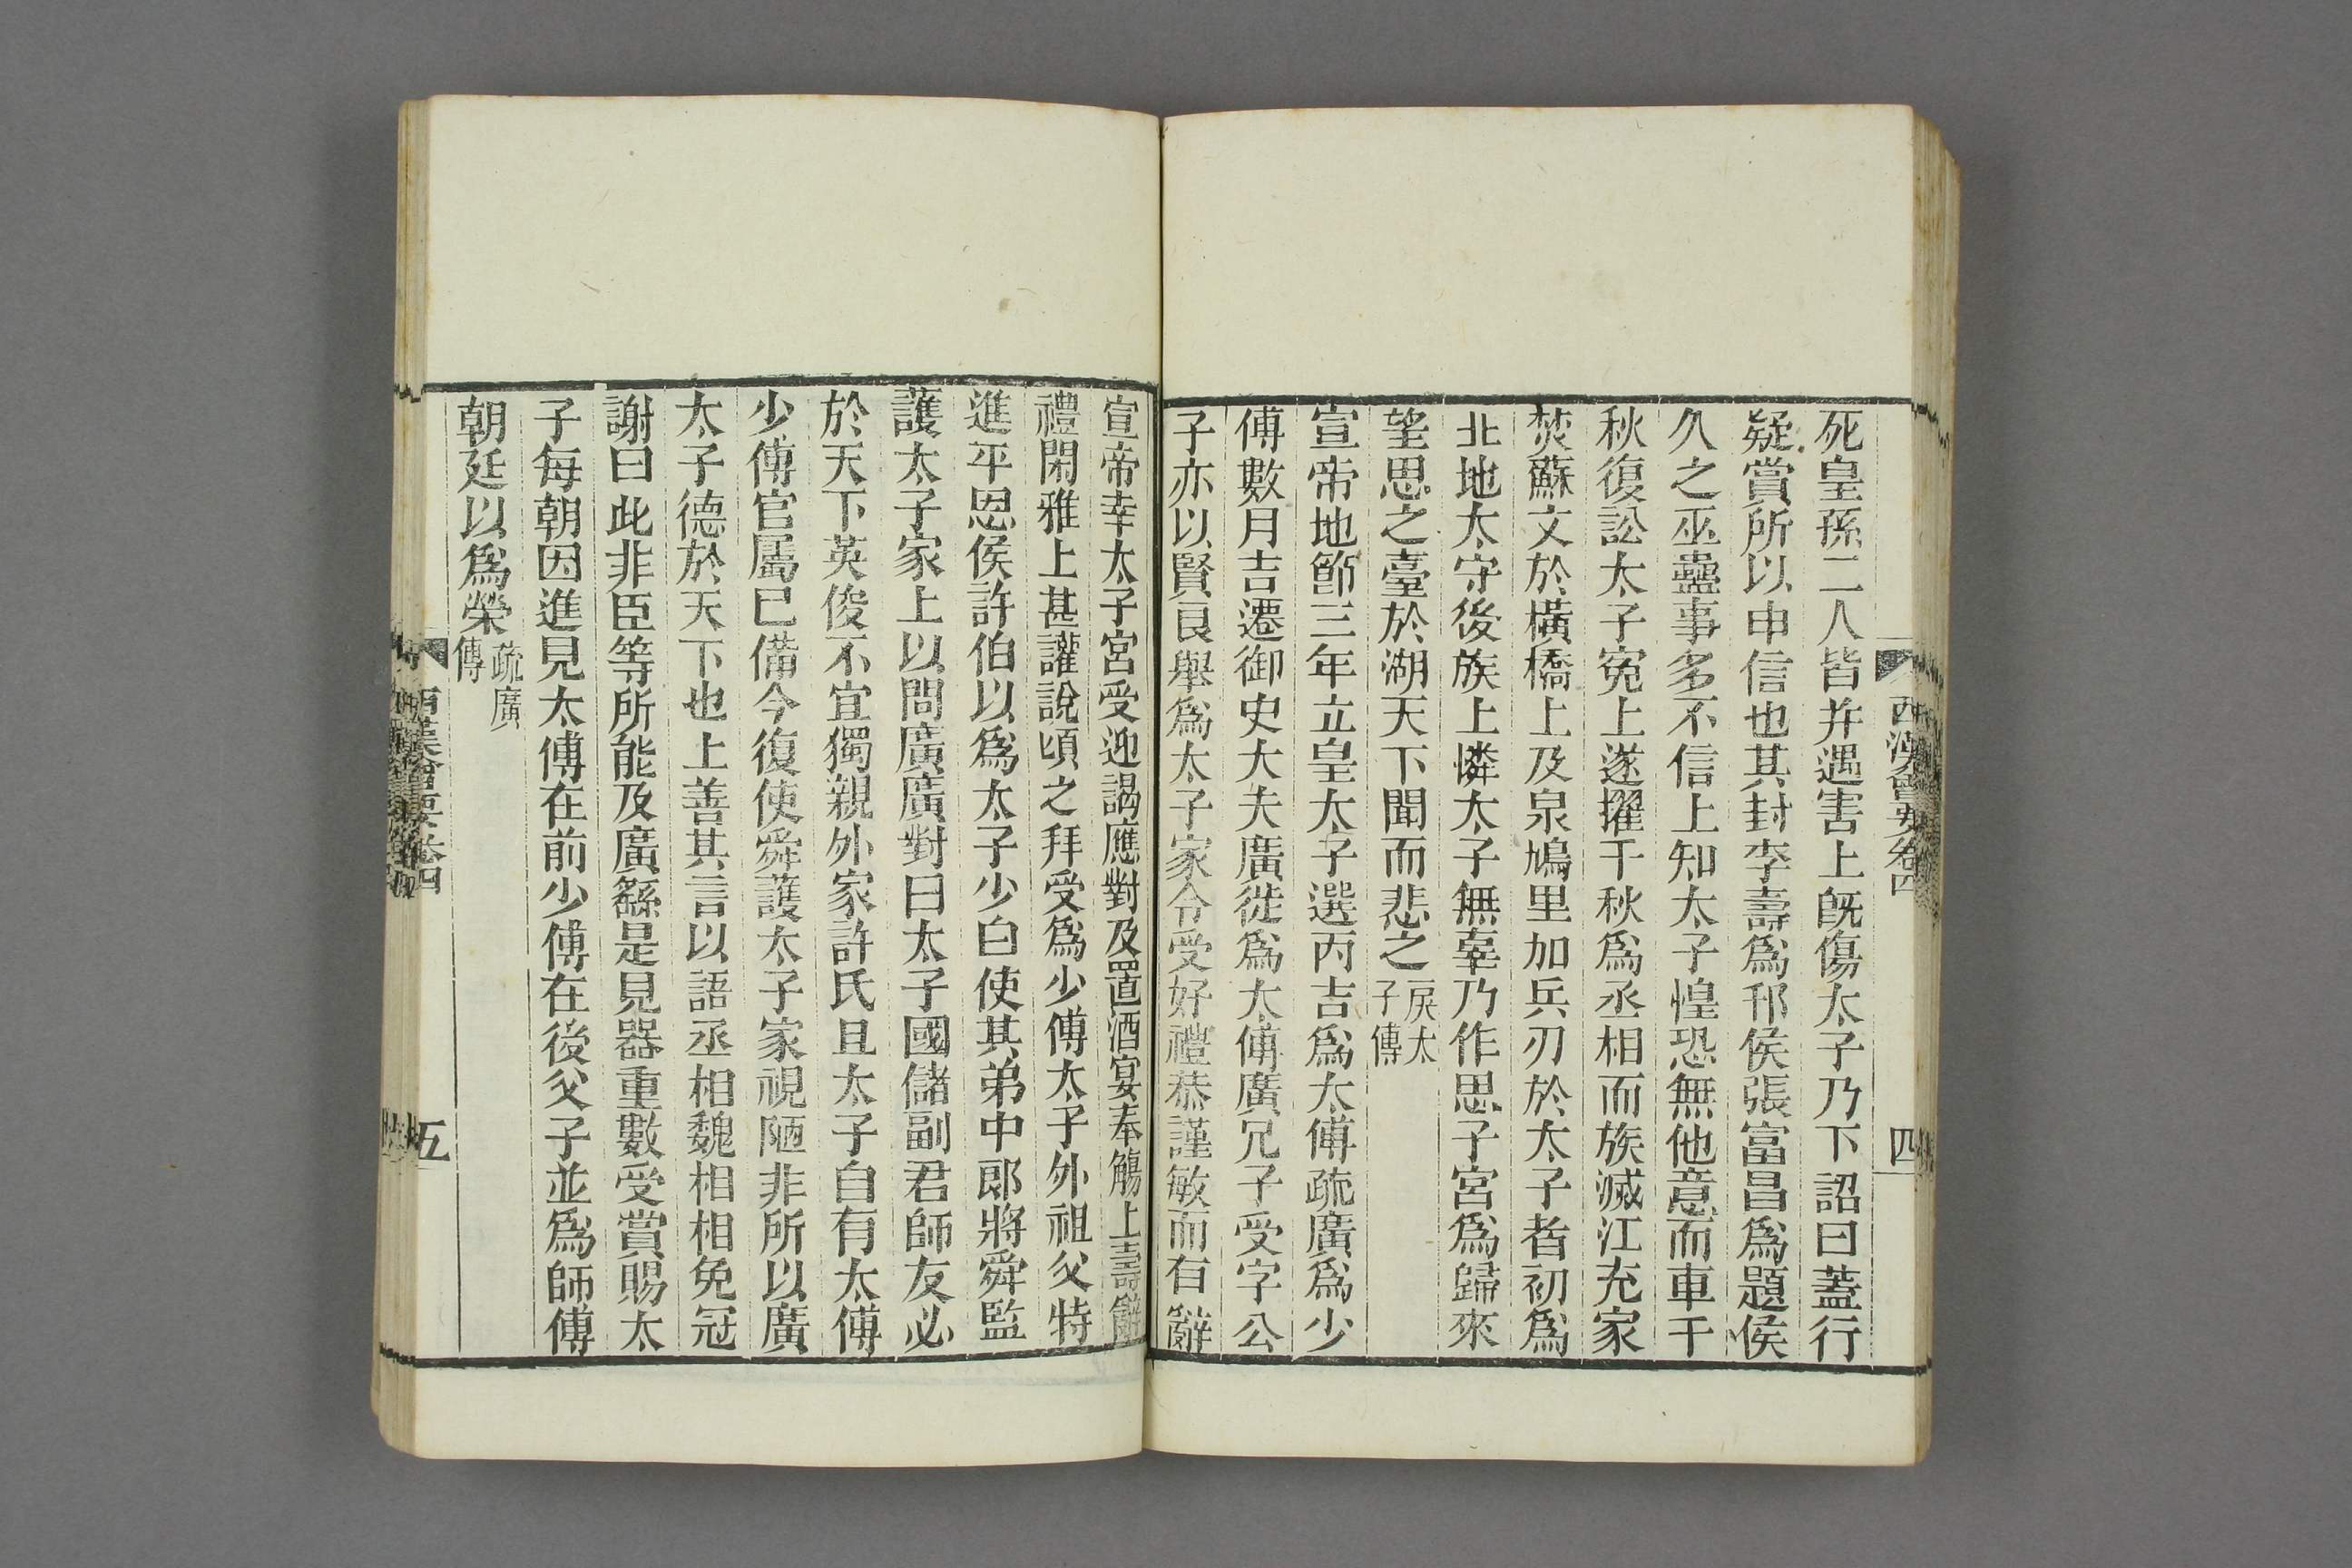 西漢會要卷四
四
死皇孫二人皆并遇害上旣傷太子乃下詔曰蓋行
疑賞所以申信也其封李壽爲邘侯張富昌爲題侯
久之巫蠱事多不信上知太子惶恐無他意而車千
秋復訟太子寃上遂擢千秋爲丞相而族滅江充家
焚蘇文於橫橋上及泉鳩里加兵刃於太子者初爲
北地太守後族上憐太子無辜乃作思子宮爲歸來
望思之臺於湖天下聞而悲之戾太子傳
宣帝地節三年立皇太子選丙吉爲太傅疏廣爲少
傅數月吉遷御史大夫廣徙爲太傅廣兄子受字公
子亦以賢良舉爲太子家令受好禮恭謹敏而有辭
宣帝幸太子宮受迎謁應對及置酒宴奉觴上壽辭
禮閑雅上甚讙說頃之拜受爲少傅太子外祖父特
進平恩侯許伯以爲太子少白使其弟中郎將舜監
護太子家上以問廣廣對曰太子國儲副君師友必
於天下英俊不宜獨親外家許氏且太子自有太傅
少傅官屬已備今復使舜護太子家視陋非所以廣
太子德於天下也上善其言以語丞相魏相相免冠
謝曰此非臣等所能及廣繇是見器重數受賞賜太
子每朝因進見太傅在前少傅在後父子並爲師傅
朝廷以爲榮疏廣傳
西漢會要卷四
五